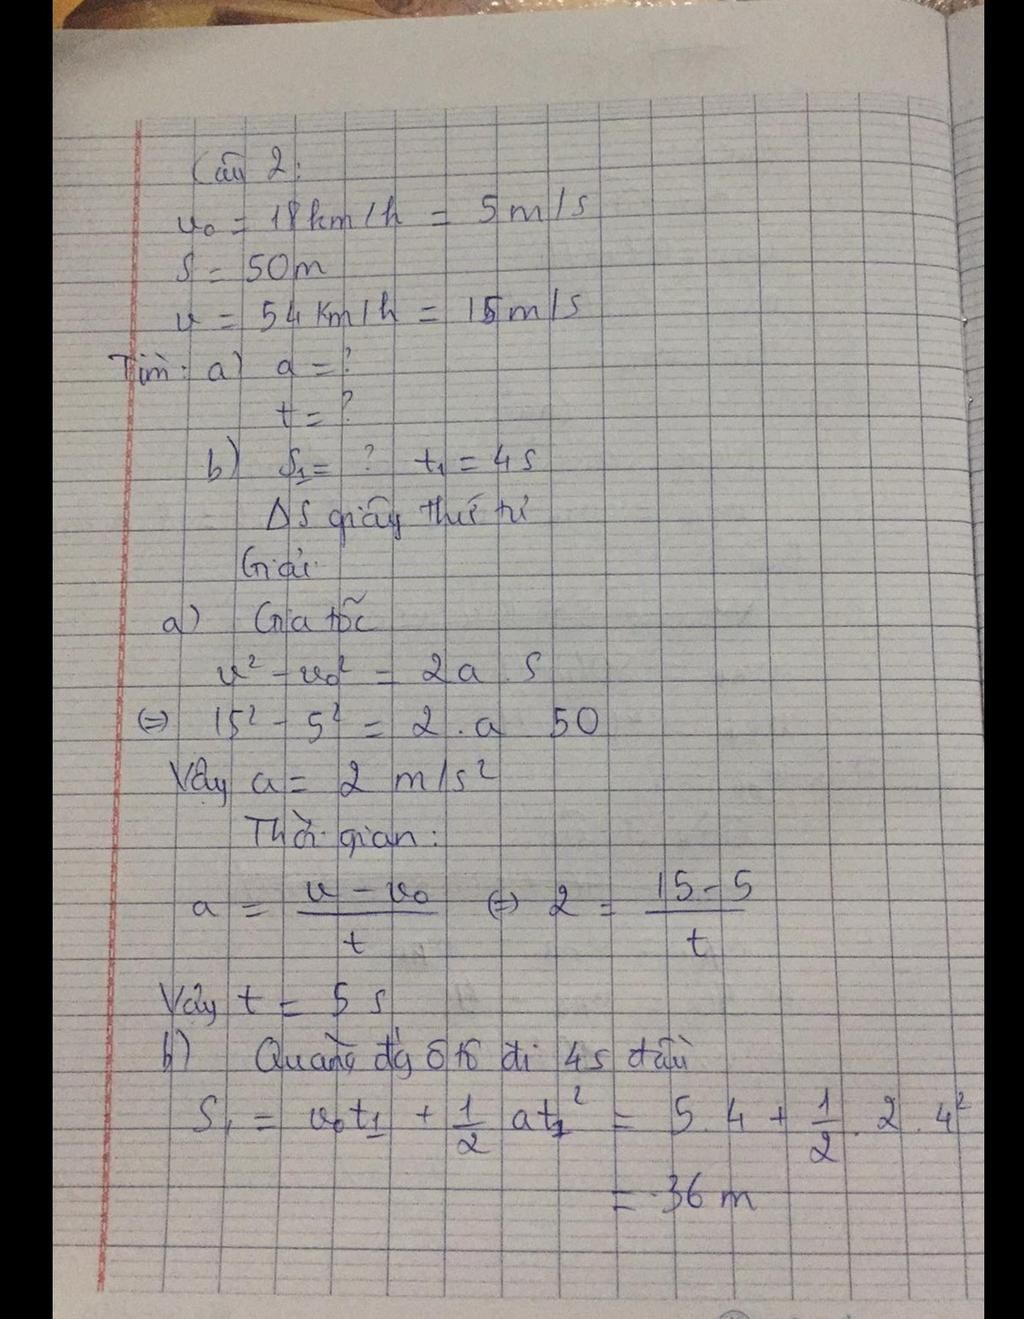 Câu 2:
v₀ = 18 km/h = 5 m/s
S = 50m
v = 54 Km/h = 15 m/s
Tìm: a) a = ?
t = ?
b) S₁ = ? t₁ = 4s
ΔS giây thứ tư
Giải
a) Gia tốc
v² - v₀² = 2a S
⇔ 15² - 5² = 2 . a 50
Vậy a = 2 m/s²
Thời gian:
a = (v - v₀)/t ⇔ 2 = (15 - 5)/t
Vậy t = 5 s
b) Quãng đg ô tô đi 4s đầu
S₁ = v₀t₁ + 1/2 at₁² = 5. 4 + 1/2 . 2 . 4²
= 36 m